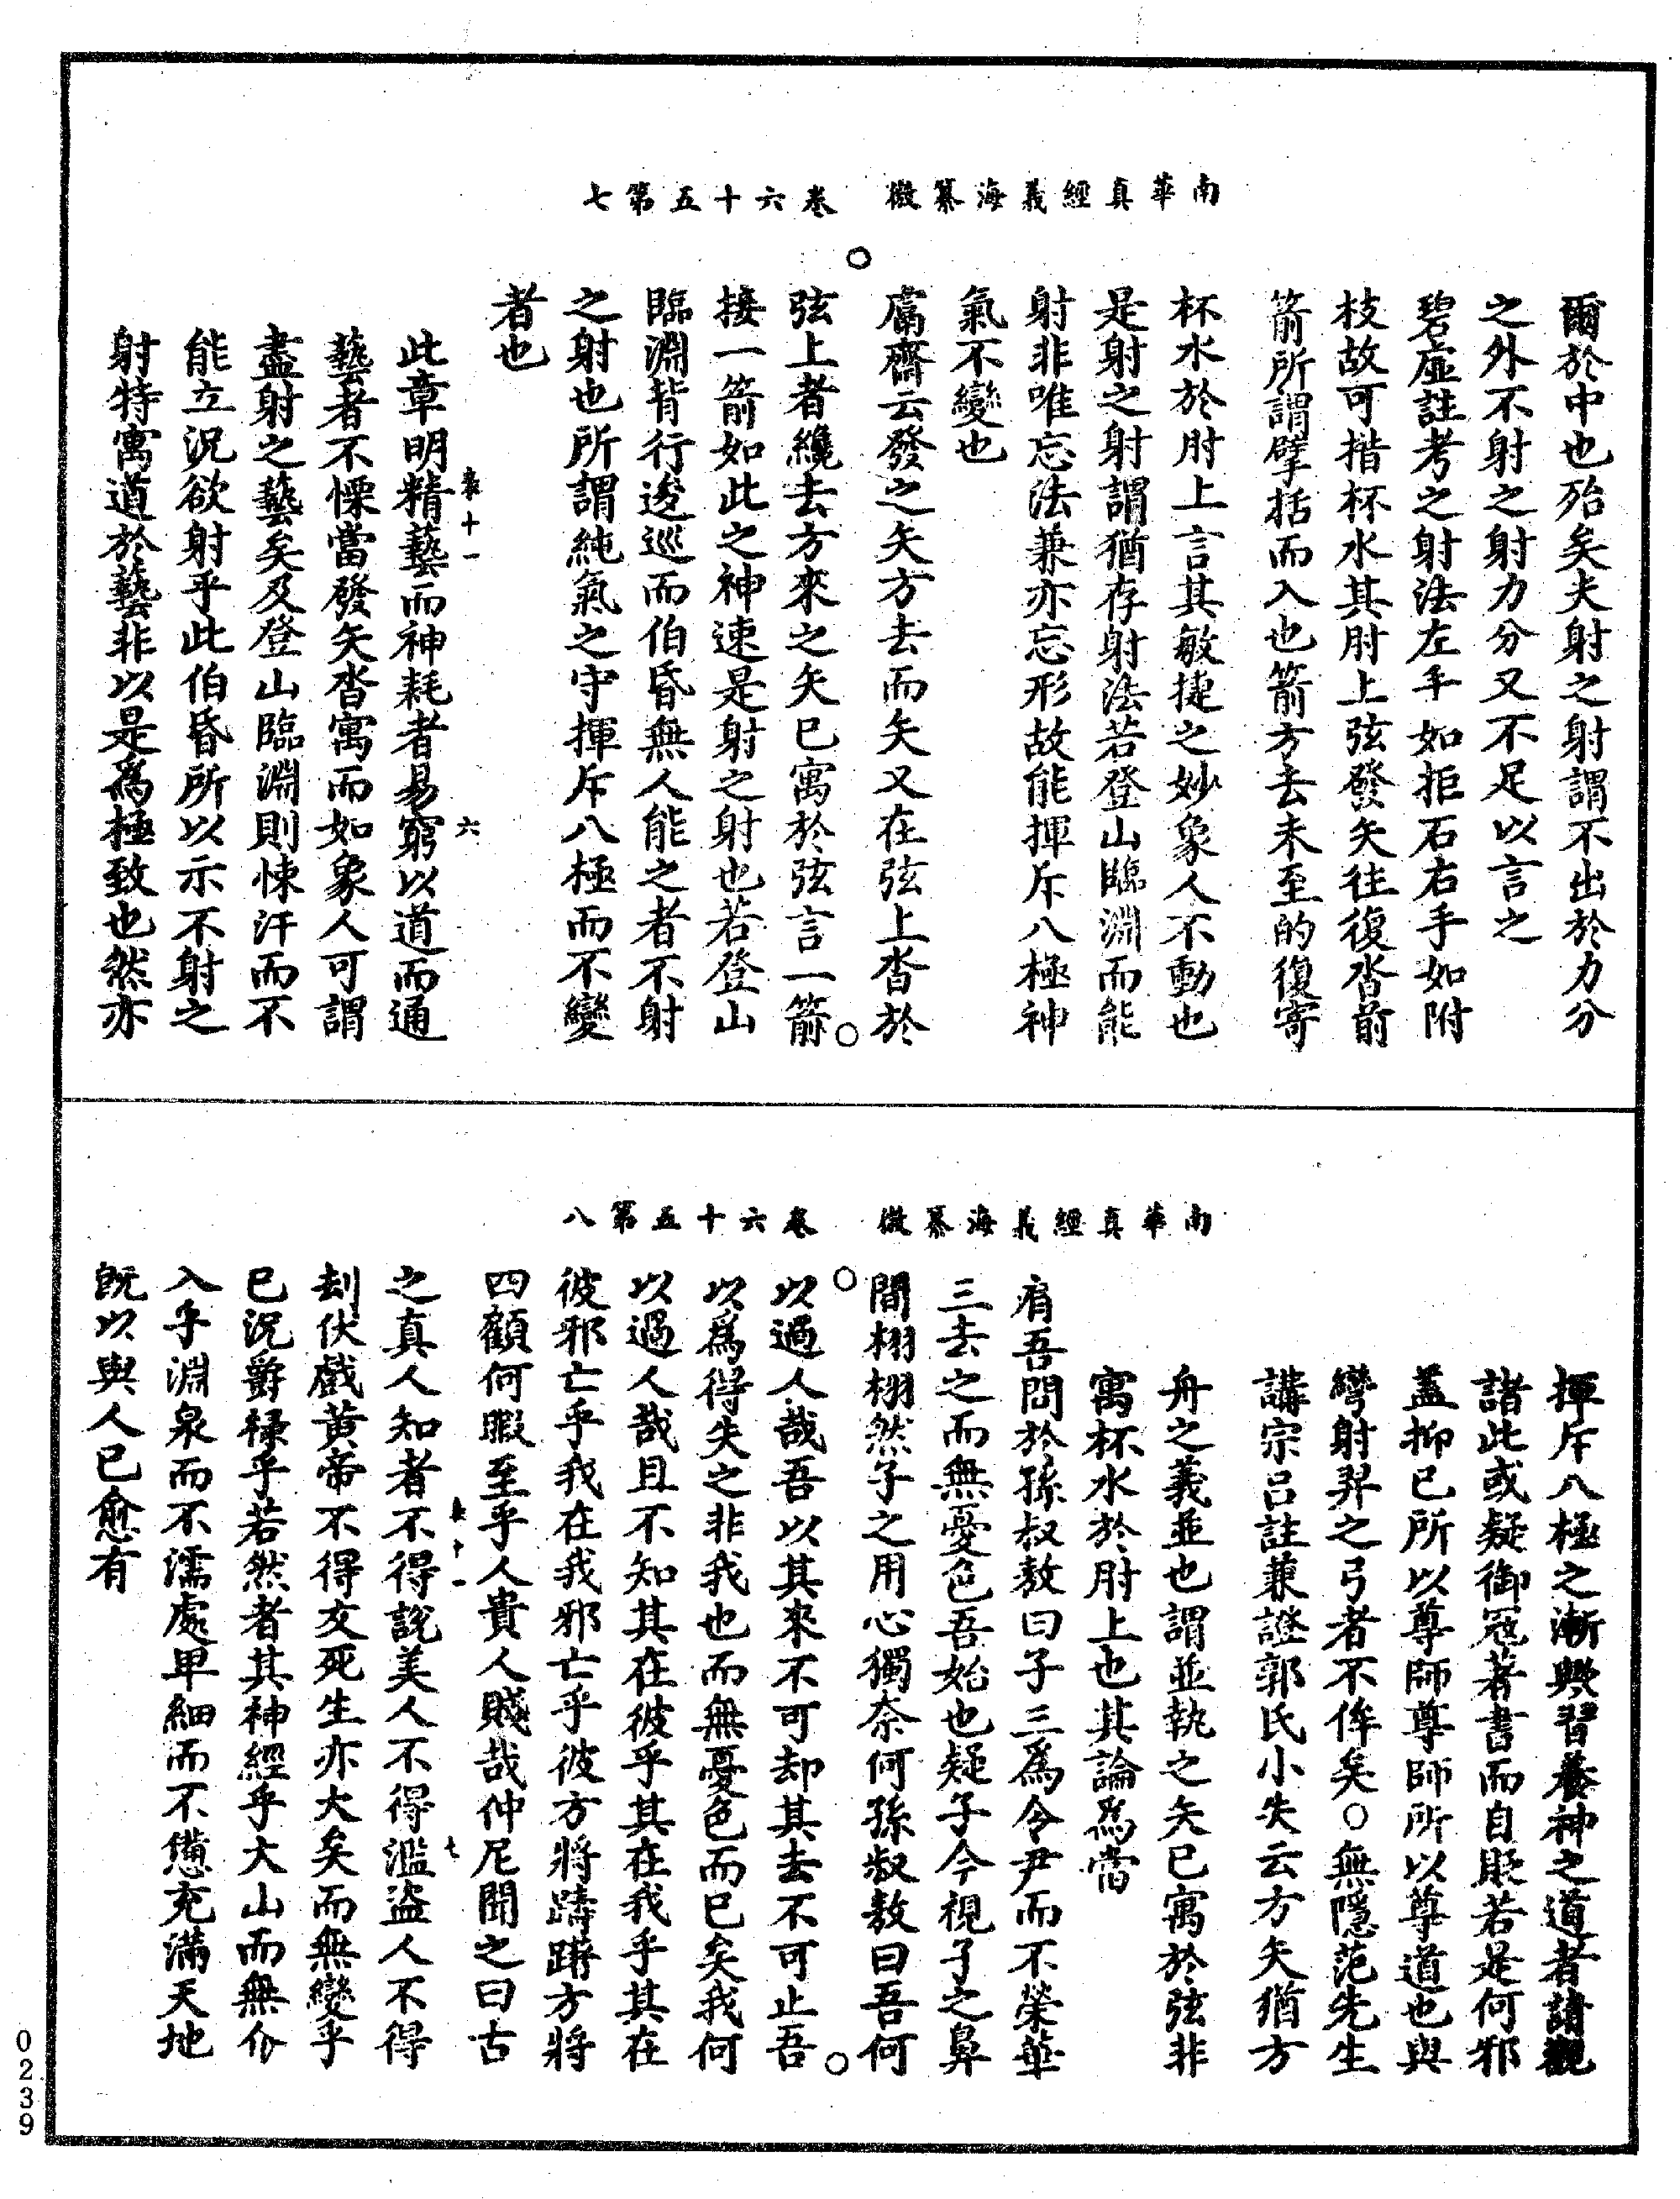 南華真經義海纂微　卷六十五第七
爾於中也殆矣夫射之射謂不出於力分
之外不射之射力分又不足以言之
碧虛註考之射法左手如拒石右手如附
枝故可措杯水其肘上弦發矢往復沓前
箭所謂擘括而入也箭方去未至的復寄
杯水於肘上言其敏捷之妙象人不動也
是射之射謂猶存射法若登山臨淵而能
射非唯忘法兼亦忘形故能揮斥八極神
氣不變也
鬳齋云發之矢方去而矢又在弦上沓於
弦上者纔去方來之矢已寓於弦言一箭
接一箭如此之神速是射之射也若登山
臨淵背行逡巡而伯昏無人能之者不射
之射也所謂純氣之守揮斥八極而不變
者也
此章明精藝而神耗者易窮以道而通
十一
六
藝者不慄當發矢沓寓而如象人可謂
盡射之藝矣及登山臨淵則悚汗而不
能立況欲射乎此伯昏所以示不射之
射特寓道於藝非以是為極致也然亦
南華真經義海纂微　卷六十五第八
揮斥八極之漸歟習養神之道者請觀
諸此或疑御寇著書而自貶若是何邪
蓋抑已所以尊師尊師所以尊道也與
彎射羿之弓者不侔矣○無隱范先生
講宗呂註兼證郭氏小失云方矢猶方
舟之義並也謂並執之矢已寓於弦非
寓杯水於肘上也其論為當
肩吾問於孫叔敖曰子三為令尹而不榮華
三去之而無憂色吾始也疑子今視子之鼻
間栩栩然子之用心獨奈何孫叔敖曰吾何
以過人哉吾以其來不可却其去不可止吾
以為得失之非我也而無憂色而已矣我何
以過人哉且不知其在彼乎其在我乎其在
彼邪亡乎我在我邪亡乎彼方將躊躇方將
四顧何暇至乎人貴人賤哉仲尼聞之曰古
十一
七
之真人知者不得說美人不得濫盜人不得
刦伏戲黃帝不得友死生亦大矣而無變乎
已況爵祿乎若然者其神經乎大山而無介
入乎淵泉而不濡處卑細而不憊充滿天地
既以與人已愈有
0239